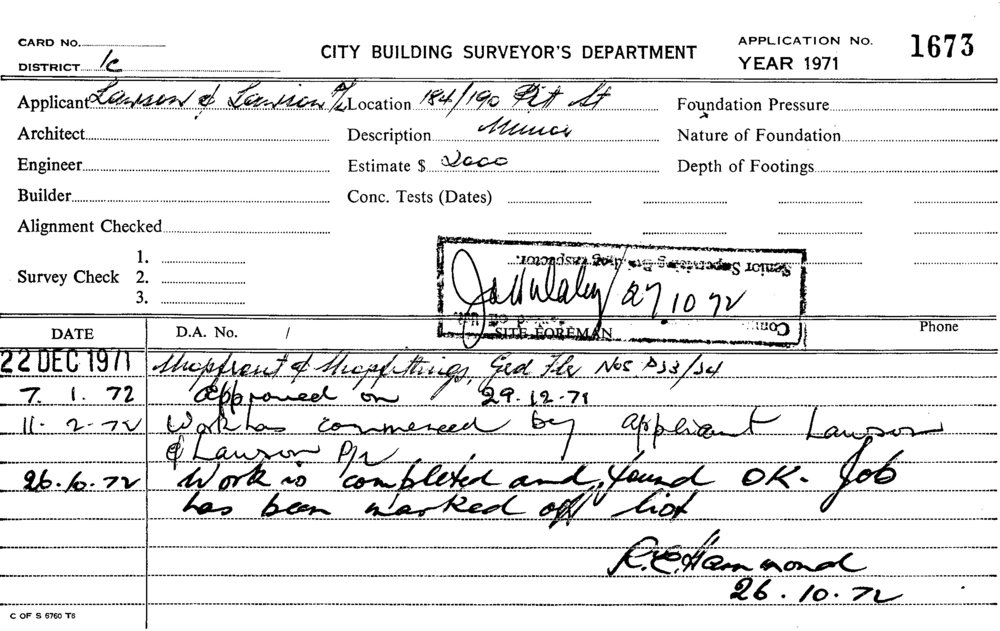 CARD No.
DISTRICT 1c
CITY BUILDING SURVEYOR'S DEPARTMENT
APPLICATION No. 1673
YEAR 1971
Applicant Lawson & Lawson P/L Location 184/190 Pitt St Foundation Pressure
Architect Description Nature of Foundation
Engineer Estimate $ 2000 Depth of Footings
Builder Conc. Tests (Dates)
Alignment Checked
Survey Check 1.
2.
3.
Senior Supervising Building Inspector.
27/10/72
SITE FOREMAN
DATE D.A. No. / Phone
22 DEC 1971 Shopfront & Shopfittings, Grd Flr Nos P33/34
7. 1. 72 Approved on 29.12.71
11. 2. 72 Work has commenced by applicant Lawson
& Lawson P/L
26.10.72 Work is completed and found OK. Job
has been marked off list
R.E. Hammond
26.10.72
C OF S 6760 T6